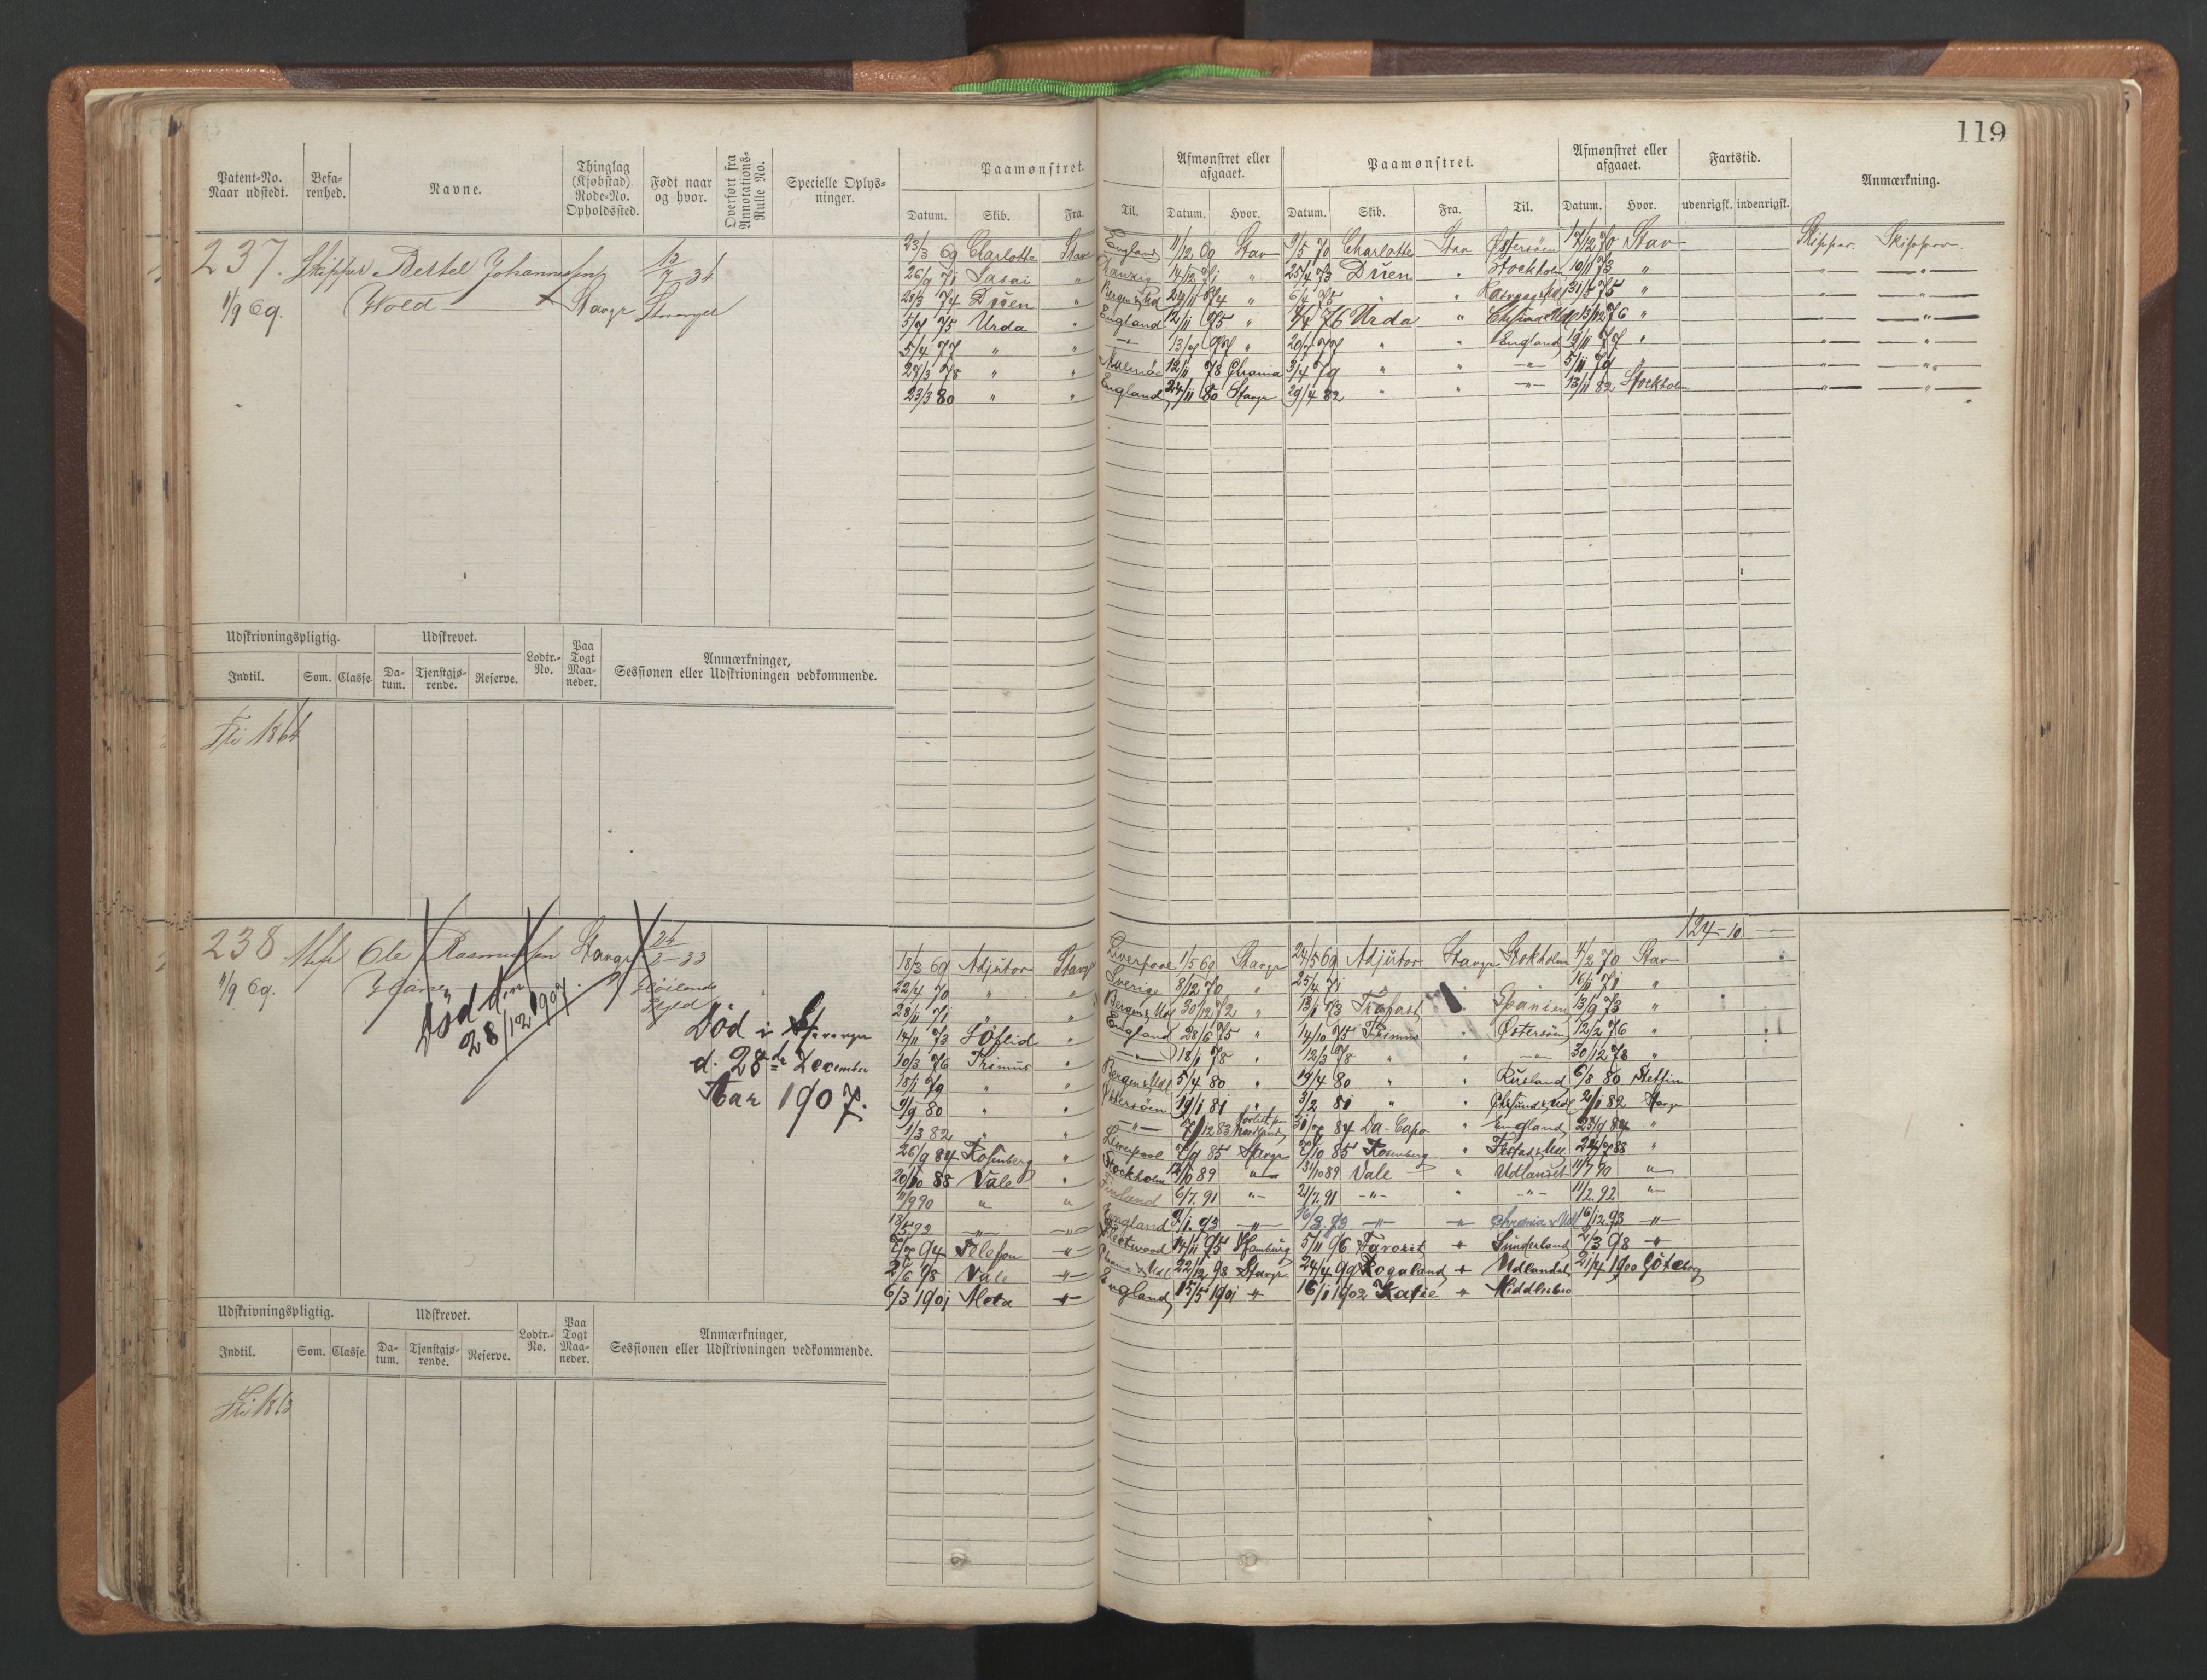 119
Patent-No. Naar udstedt. Befa-renhed. Navne. Thinglag (Kjøbstad) Rode-No. Opholdssted. Født naar og hvor. Overført fra Annotations-Rulle No. Specielle Oplys-ninger. Paamønstret. Afmønstret eller afgaaet. Paamønstret. Afmønstret eller afgaaet. Fartstid. Anmærkning.
Datum. Skib. Fra. Til. Datum. Hvor. Datum. Skib. Fra. Til. Datum. Hvor. udenrigsk. indenrigsk.
237. Skipper Bertel Johannessen
1/9 69. Wold Stavgr Stavanger
23/3 69 Charlotte Stav England 11/12 69 Stav 9/5 70 Charlotte Stav Østersøen 17/12 70 Stav Skipper. Skipper.
26/9 71 " 14/12 71 " 25/4 73 Duen " Stockholm 10/11 73 "
28/3 74 Duen " Bergen & Udl 24/11 74 " 6/4 75 " " 31/5 75 "
5/7 75 Urda " England 12/11 75 " 76 Urda " 13/12 76 "
5/4 77 " " 13/7 77 " 20/7 77 " " England 19/11 77 "
27/3 78 " " 12/11 78 Chrania 3/4 79 " " 5/11 79 "
23/3 80 " " England 24/11 80 Stavgr 29/4 82 " " 13/11 82 Stockholm
Udskrivningspligtig. Udskrevet. Lodtr.-No. Paa Togt Maa-neder. Anmærkninger, Sessionen eller Udskrivningen vedkommende.
Indtil. Som. Classe. Da-tum. Tjenstgjø-rende. Reserve.
Fri 1864
124-10
238 Ole Rasmussen Stavgr 24/2-33
1/9 69.
Død d.
28/12 1907
Død i Stavanger
d. 28de December
Aar 1907.
18/3 69 Adjutor Stavgr Liverpool 1/5 69 Stavgr 24/5 69 Adjutor Stavgr Stokholm 11/2 70 Stav
22/4 70 " " Sverige 8/12 70 " 25/4 71 " " 16/11 71 "
28/11 71 " " Bergen & Udl 30/12 72 " 13/1 73 Trofast " Spanien 13/9 73 "
14/11 73 " England 28/6 75 " 14/10 75 Primus " Østersøen 12/2 76 "
10/3 76 Primus " 18/1 78 " 12/3 78 " " 30/12 78 "
18/1 79 " " Bergen & Udl 5/4 80 " 19/4 80 " " Rusland 6/8 80 Stettin
9/9 80 " " Østersøen 19/1 81 " 3/2 81 " " Chrsund & Udl 21/1 82 Stavgr
1/3 82 " " 7/12 83 forlist paa Nordland 31/7 84 Da-Capo " England 23/9 84 "
26/9 84 Rosenberg " Liverpool 7/9 85 Stavgr 7/10 85 Rosenberg " 88 "
88 Vale " Stockholm 89 " 31/10 89 Vale " Udlandet 11/7 90 "
11/9 90 " " Finland 6/7. 91 " 21/7. 91 " " " 11/2. 92 "
92 England 9/1. 93 16/3. 93 Chrania & Udl 16/12. 93
94 Telefon Fleetwood 14/11 95 Hamburg 5/11 96 Favorit Sunderland 2/3 98
2/6 98 Vale Chrania & Udl 22/12 98 Stavgr 24/4 99 Rogaland Udlandet 21/4 1900 Göteborg
6/3 1901 Meta England 15/5 1901 16/1 1902 Katie Middlesbro
Udskrivningspligtig. Udskrevet. Lodtr.-No. Paa Togt Maa-neder. Anmærkninger, Sessionen eller Udskrivningen vedkommende.
Indtil. Som. Classe. Da-tum. Tjenstgjø-rende. Reserve.